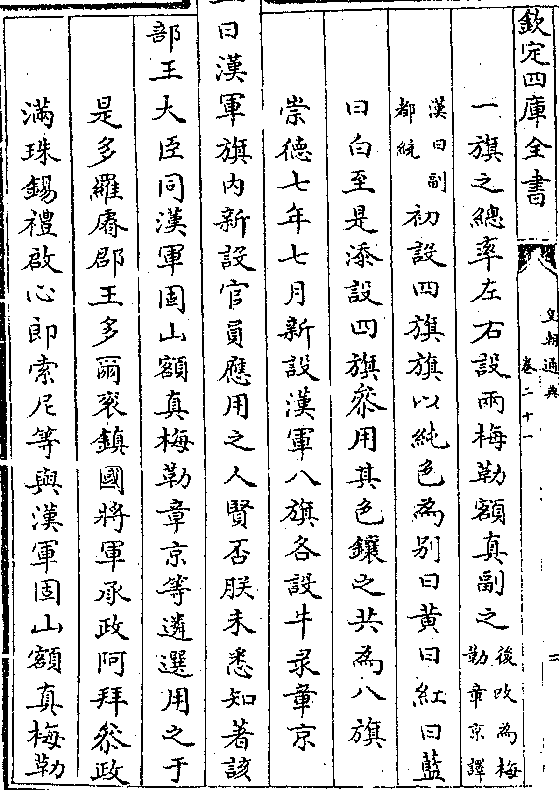 欽定四庫全書
皇朝通典
卷二十一
一旗之總率左右設兩梅勒額真副之後改為梅勒章京譯
漢曰副都統初設四旗旗以純色為别曰黄曰紅曰藍
曰白至是添設四旗叅用其色鑲之共為八旗
崇德七年七月新設漢軍八旗各設牛录章京
曰漢軍旗内新設官員應用之人賢否朕未悉知著該
部王大臣同漢軍固山額真梅勒章京等遴選用之于
是多羅睿郡王多爾袞鎮國將軍承政阿拜叅政
滿珠錫禮啟心郎索尼等與漢軍固山額真梅勒